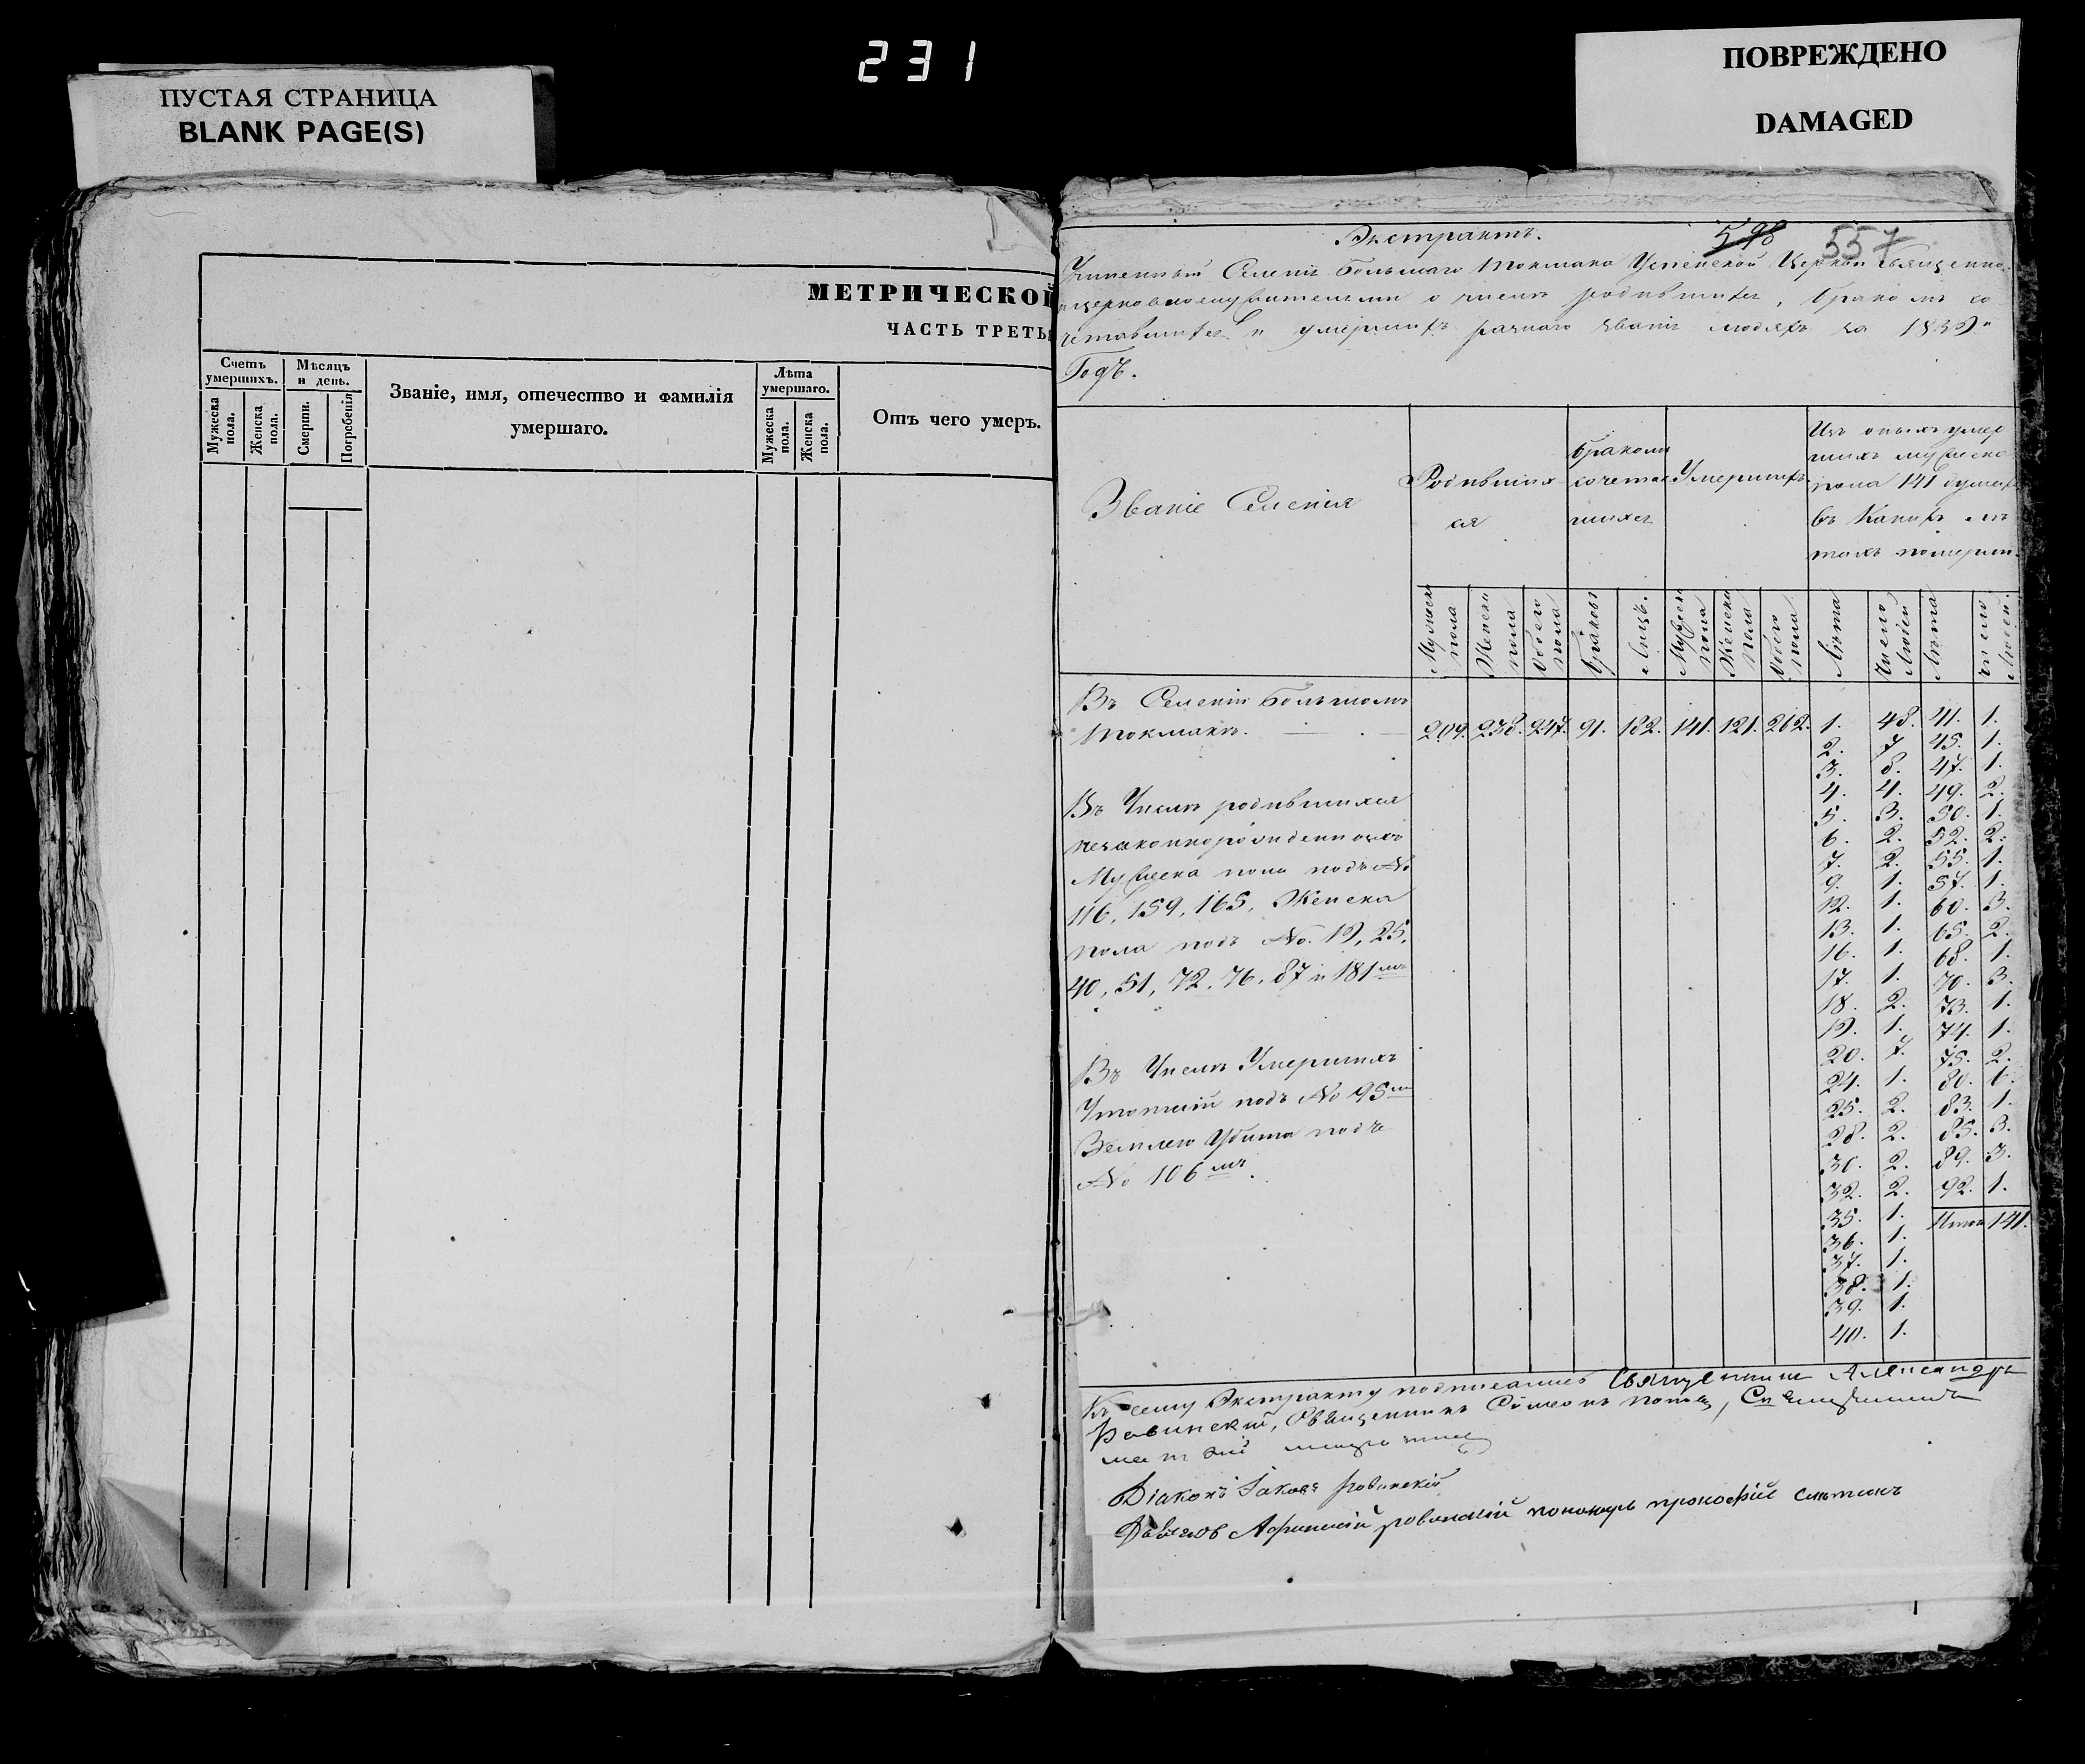 231
ПУСТАЯ СТРАНИЦА
BLANK PAGE(S)
ПОВРЕЖДЕНО
DAMAGED
МЕТРИЧЕСКОЙ
ЧАСТЬ ТРЕТЬ
Счетъ умершихъ.
Мѣсяцъ и день.
Званіе, имя, отечество и фамилія умершаго.
Лѣта умершаго.
Отъ чего умеръ.
Мужеска пола.
Женска пола.
Смерти.
Погребенія
Мужеска пола.
Женска пола.
Экстрактъ.
598 557
Селенія Большаго Токмака Успенской Церкви священно
церковнослужителями о числѣ родившихся, бракомъ со
четавшихся и умершихъ разнаго званія людяхъ за 1839й
Годъ.
Званіе Селенія
Родивших
ся
бракомъ
сочетав
шихся
Умершихъ
Изъ оныхъ умер
шихъ мужеска
пола 141 душахъ
въ какихъ лѣ
тахъ померли.
Мужеска пола
Женска пола
Обоего пола
Браковъ
Лицъ.
Мужеска пола
Женска пола
Обоего пола
Лѣта
Число людей
Лѣта
Число людей.
Въ Селеніи Большомъ
Токмакѣ. 209. 238. 247. 91. 182. 141. 121. 262. 1. 48. 41. 1.
2. 7 45. 1.
3. 8. 47. 1.
4. 4. 49. 2.
5. 3. 50. 1.
6. 2. 52. 2.
7. 2. 55. 1.
9. 1. 57. 1.
12. 1. 60. 3.
13. 1. 65. 2.
16. 1. 68. 1.
17. 1. 70. 3.
18. 2. 73. 1.
19. 1. 74. 1.
20. 7. 75. 2.
24. 1. 80. 6.
25. 2. 83. 1.
28. 2. 85. 3.
30. 2. 89. 3.
32. 2. 92. 1.
35. 1. Итого 141.
36. 1.
37. 1.
38. 1.
39. 1.
40. 1.
Въ Числѣ родившихся
незаконнорожденныхъ
Мужеска пола подъ №
116, 159, 165, Женска
пола подъ No. 19, 25,
40, 51, 72, 76, 87 и 181мъ
Въ Числѣ Умершихъ
Утопшій подъ № 95мъ
Землею Убита подъ
№ 106мъ.
Къ сему Экстракту подписались Священникъ Александръ
Ровинскій, Священникъ Симеонъ
Діаконъ Іаковъ Ровинскій
Ровинскій пономарь прокофій